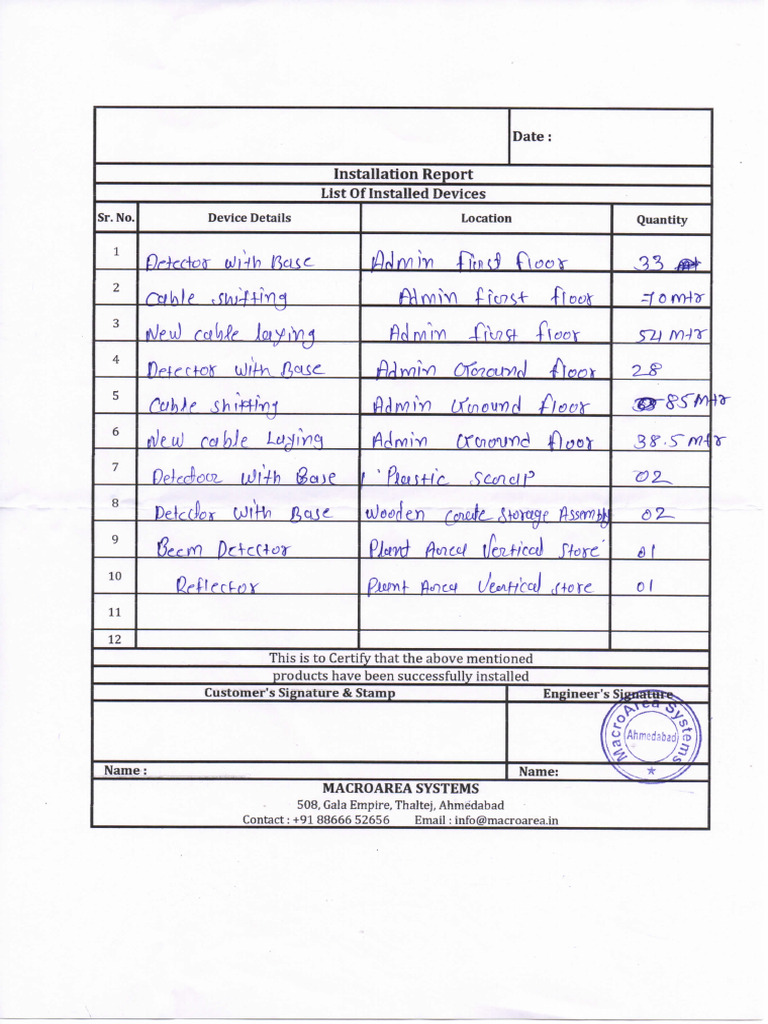 Date :
Installation Report
List Of Installed Devices
Sr. No. Device Details Location Quantity
1 Detector with Base Admin first floor 33
2 Cable shifting Admin first floor 70 mtr
3 New cable laying Admin first floor 54 mtr
4 Detector with Base Admin Ground floor 28
5 Cable shifting Admin Ground floor 85 mtr
6 New cable Laying Admin Ground floor 38.5 mtr
7 Detector with Base Plastic Scrap 02
8 Detector with Base Wooden Crate Storage Assembly 02
9 Beem Detector Plant Area Vertical Store 01
10 Reflector Plant Area Vertical store 01
11
12
This is to Certify that the above mentioned
products have been successfully installed
Customer's Signature & Stamp Engineer's Signature
MacroArea Systems
Ahmedabad
Name : Name:
MACROAREA SYSTEMS
508, Gala Empire, Thaltej, Ahmedabad
Contact : +91 88666 52656 Email : info@macroarea.in